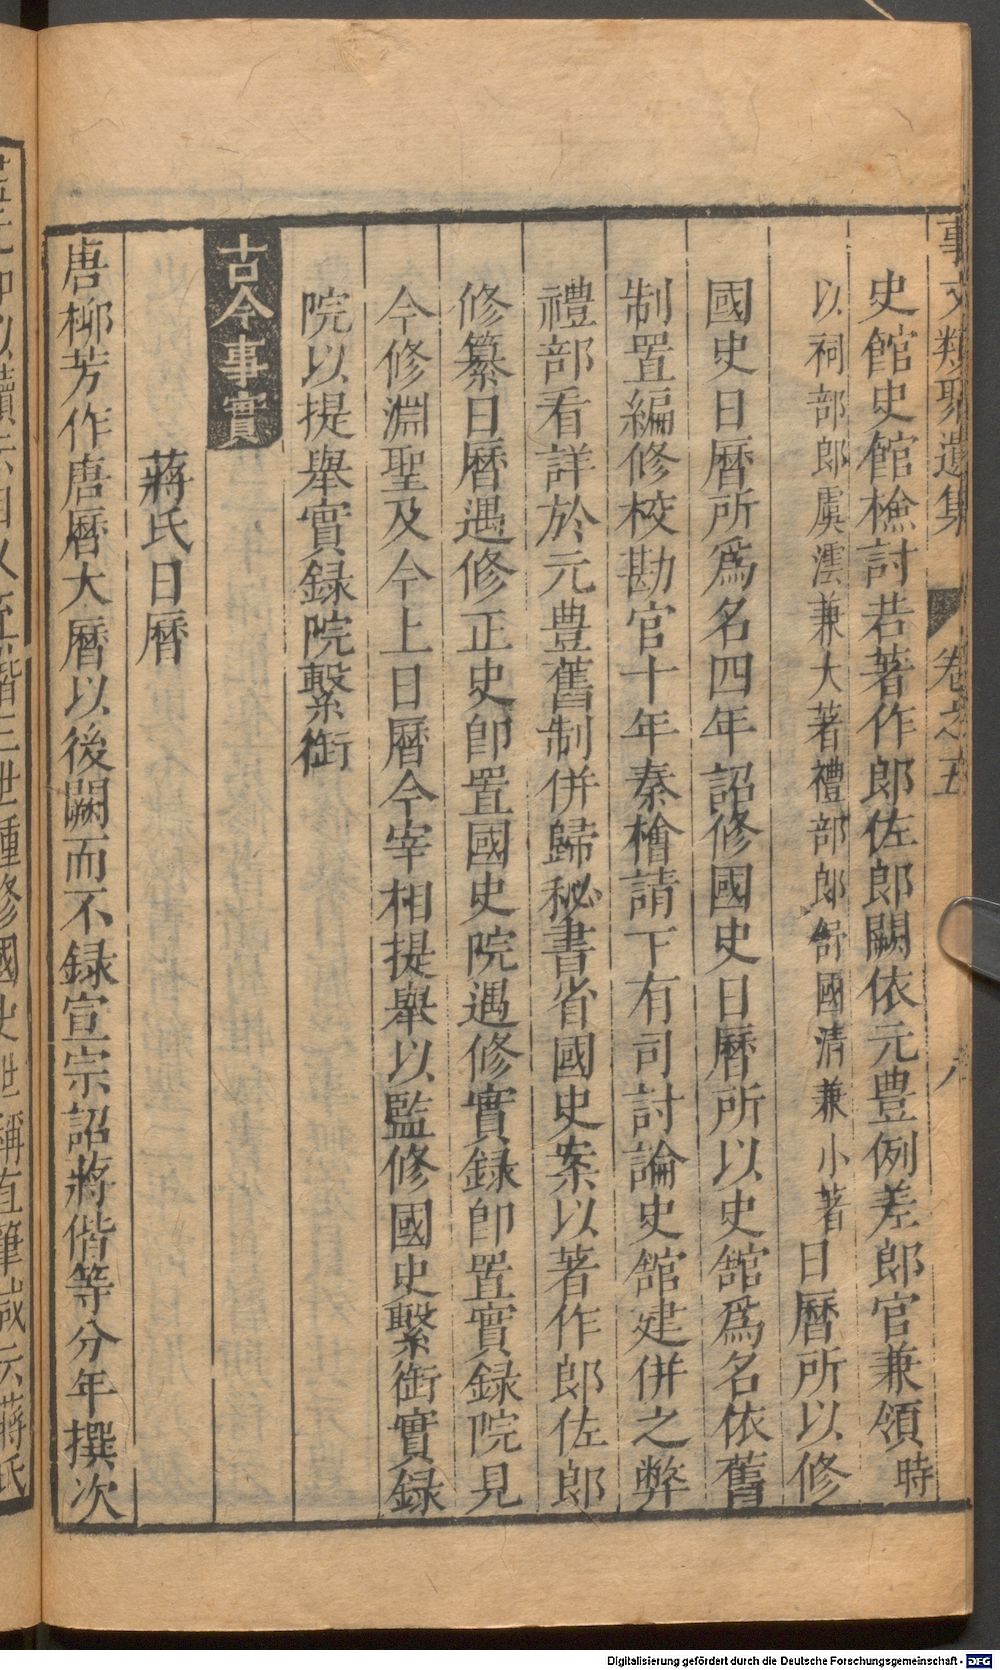 事文類聚遺集 卷之五
史館史館檢討若著作郎佐郎闕依元豊例差郎官兼領時
以祠部郎虞澐兼大著禮部郎舒國清兼小著日曆所以修
國史日曆所爲名四年詔修國史日曆所以史館爲名依舊
制置編修校勘官十年秦檜請下有司討論史館建併之弊
禮部看詳於元豊舊制併歸秘書省國史案以著作郎佐郎
修纂日曆遇修正史卽置國史院遇修實録卽置實録院見
今修淵聖及今上日曆今宰相提舉以監修國史繫銜實録
院以提舉實録院繫銜
古今事實
蔣氏日曆
唐柳芳作唐曆大曆以後闕而不録宣宗詔蔣偕等分年撰次
三世踵修國史世稱直筆咸云蔣氏
Digitalisierung gefördert durch die Deutsche Forschungsgemeinschaft - DFG